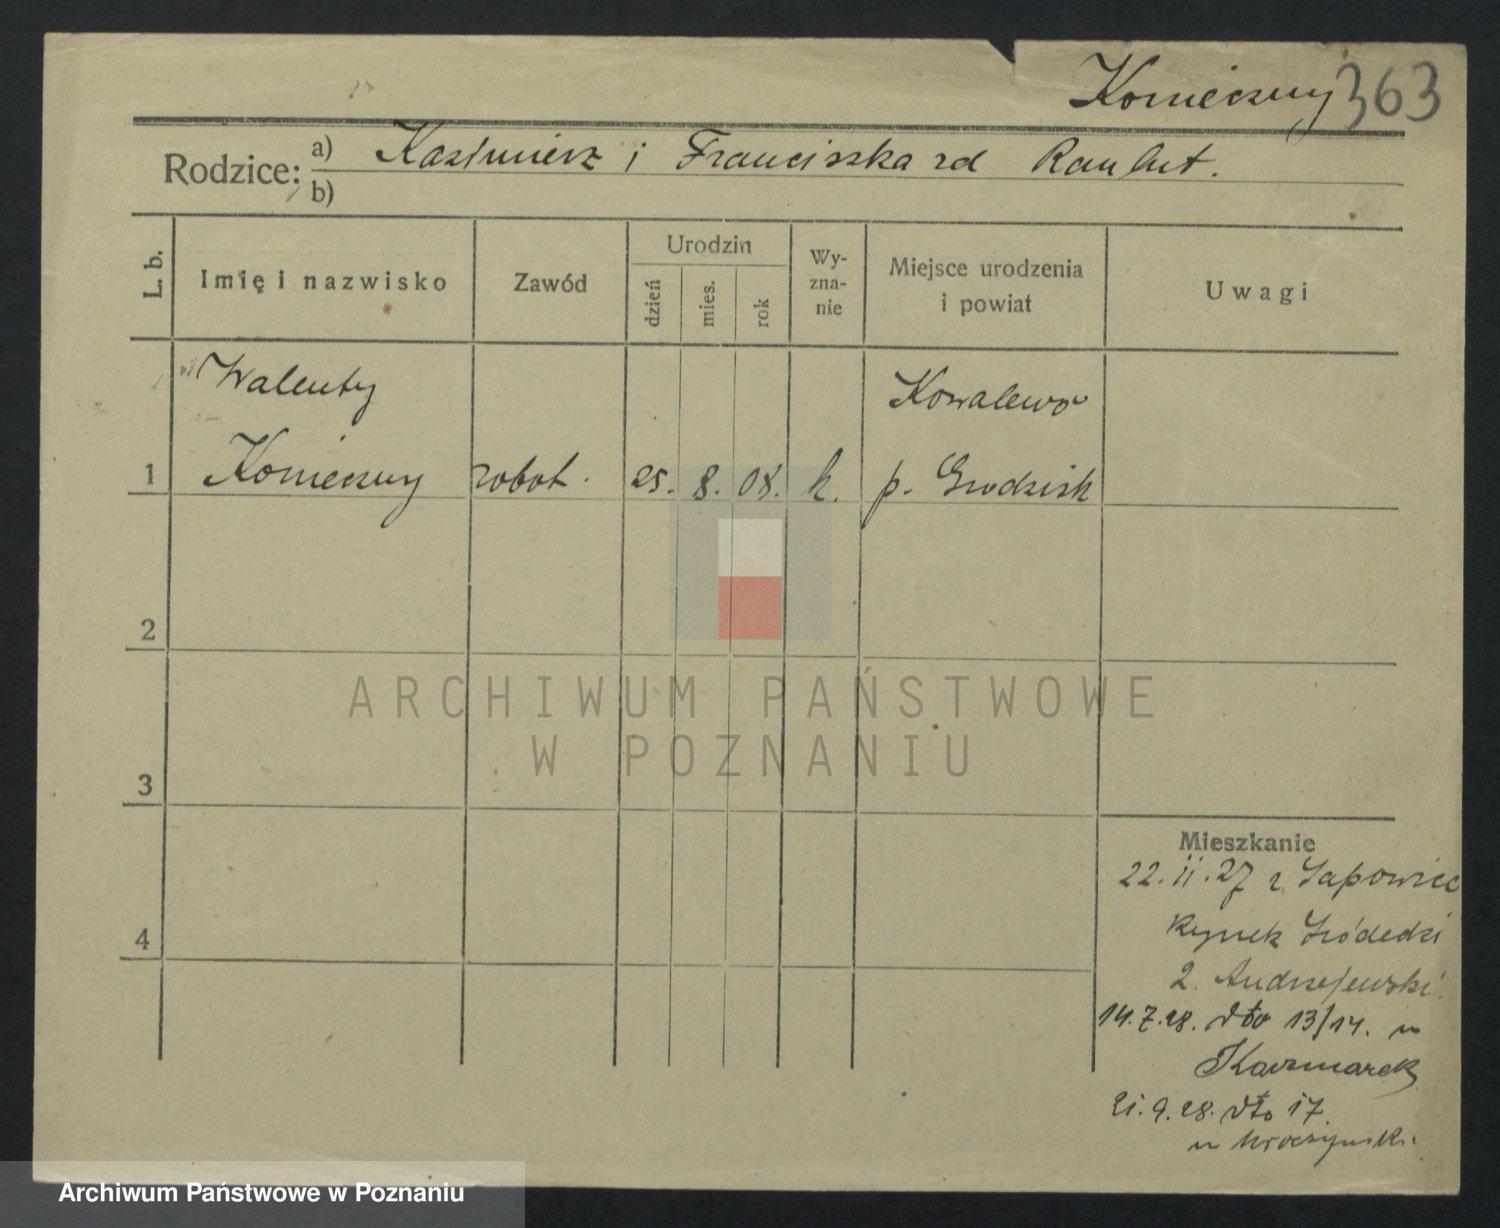 Konieczny 363
Rodzice: a) Kazimierz i Franciszka zd
b)
L. b.
Imię i nazwisko
Zawód
Urodzin
dzień
mies.
rok
Wy-
zna-
nie
Miejsce urodzenia
i powiat
Uwagi
Walenty
Kowalewo
1 Konieczny robot. 25. 8. 08. k. p. Grodzisk
2
3
4
ARCHIWUM PAŃSTWOWE
W POZNANIU
Mieszkanie
22.11.27 z
Rynek Śródecki
2. Andrzejewski
14.7.28. dto 13/14. u
Kaczmarek
21.9.28. dto 17.
u
Archiwum Państwowe w Poznaniu